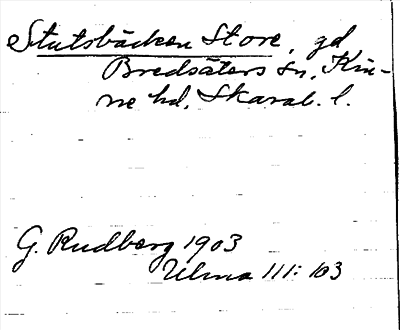 Stutsbäcken Store, gd
Bredsäters sn, Kin-
ne hd, Skarab. l.
G. Rudberg 1903
Ulma 111: 103